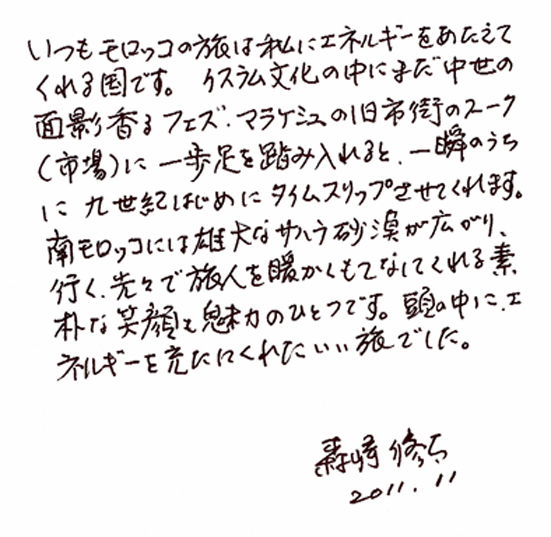 いつもモロッコの旅は私にエネルギーをあたえて
くれる国です。イスラム文化の中にまだ中世の
面影香るフェズ・マラケシュの旧市街のスーク
(市場)に一歩足を踏み入れると、一瞬のうち
に九世紀はじめにタイムスリップさせてくれます。
南モロッコには雄大なサハラ砂漠が広がり、
行く、先々で旅人を暖かくもてなしてくれる素
朴な笑顔も魅力のひとつです。頭の中に、エ
ネルギーを充たしてくれたいい旅でした。
森崎 修
2011.11